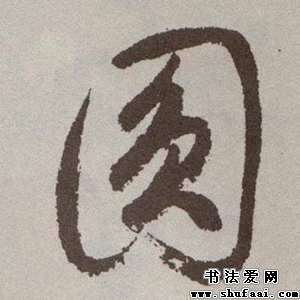 圆
书法爱网
www.shufaai.com